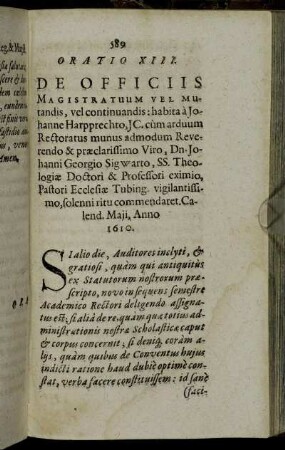 589
ORATIO XIII.
DE OFFICIIS
MAGISTRATUUM VEL MU-
tandis, vel continuandis: habita à Jo-
hanne Harpprechto, JC. cùm arduum
Rectoratus munus admodum Reve-
rendo & præclarissimo Viro, Dn-Joh-
hanni Georgio Sigwarto, SS. Theo-
logiæ Doctori & Professori eximio,
Pastori Ecclesiæ Tubing. vigilantissi-
mo, solenni ritu commendaret. Ca-
lend. Maji, Anno
1610.
SI alio die, Auditores inclyti, &
gratiosi, quàm qui antiquitùs
ex Statutorum nostrorum præ-
scripto, novo insequens semestre
Academico Rectori deligendo assigna-
tus est: si aliâ de re, quàm quæ totius ad-
ministrationis nostræ Scholasticæ caput
& corpus concernit; si deniq; coràm a-
lys, quàm quibus de Conventus hujus
indicti ratione haud dubiè optimè con-
stat, verba facere constituissem: id sanè
(faci-